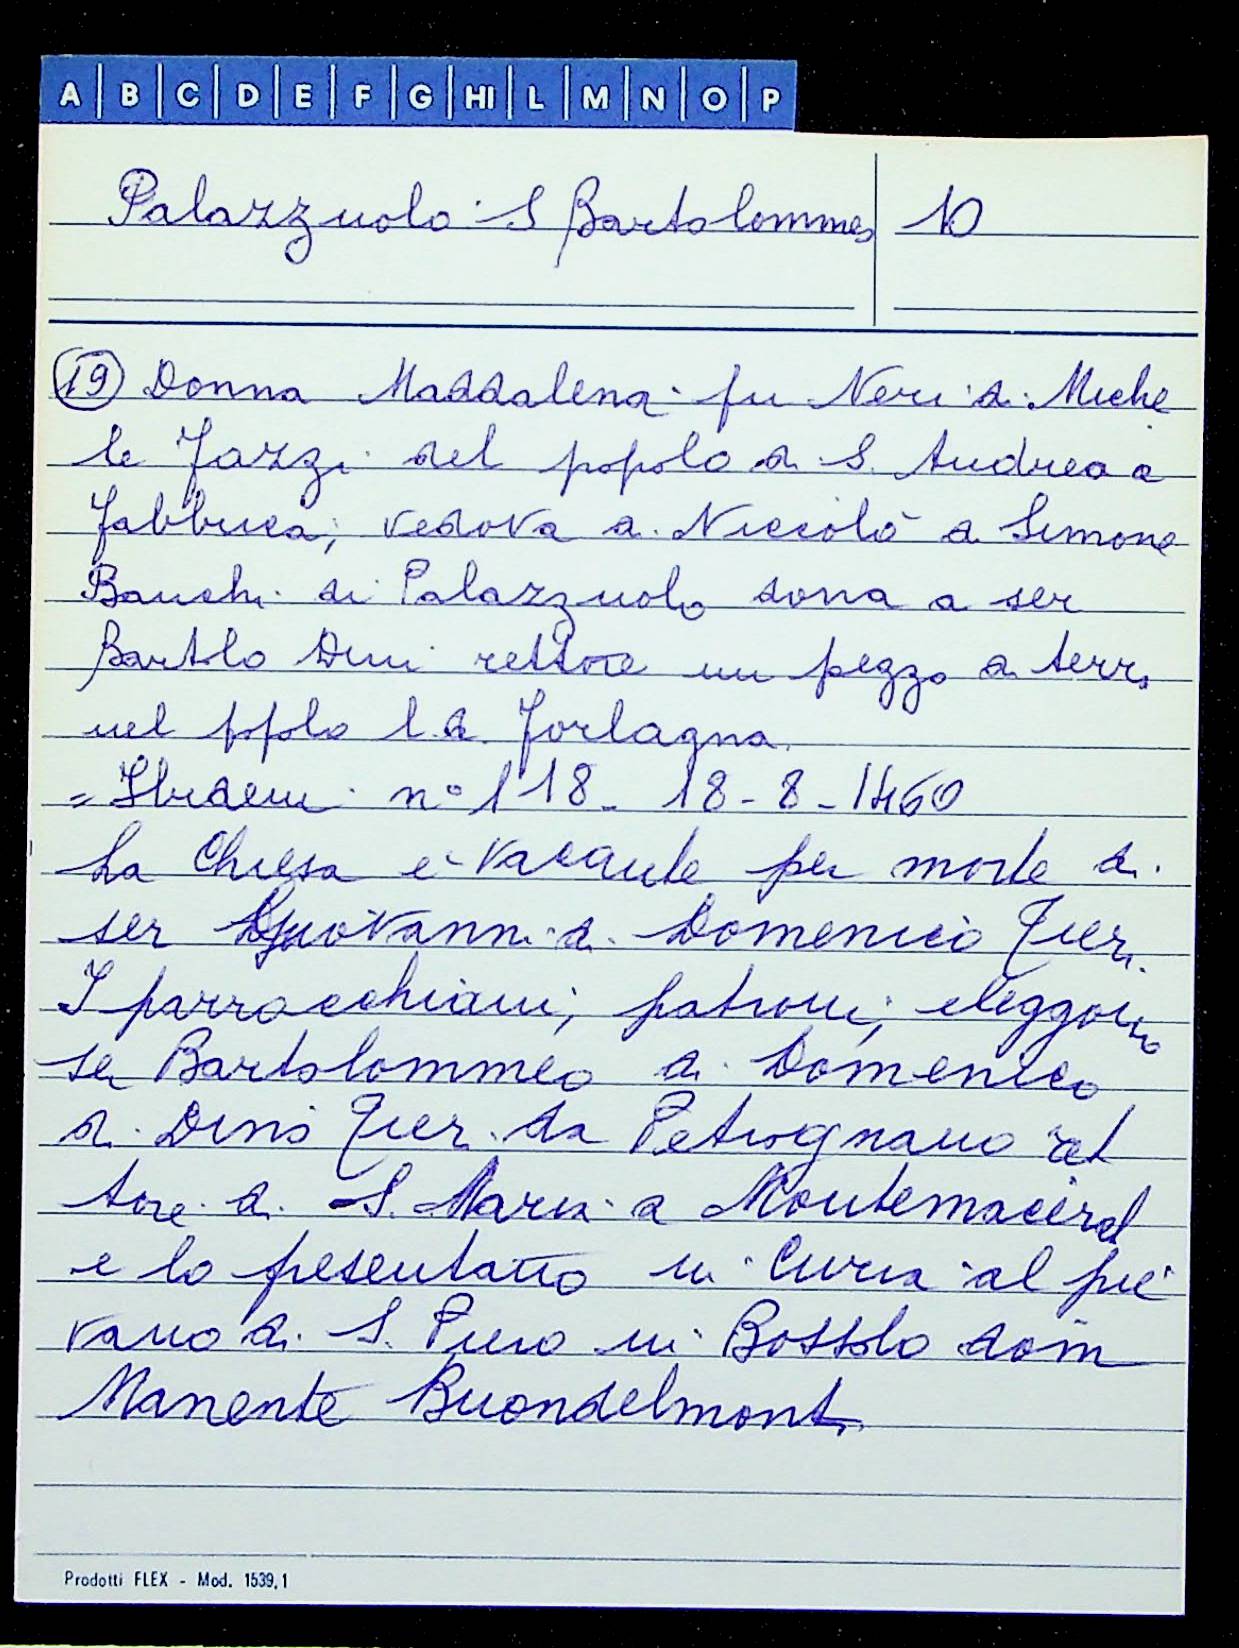 A B C D E F G HI L M N O P
Palazzuolo S Bartolommeo 10
19 Donna Maddalena fu Neri di Miche
le Fazzi del popolo di S. Andrea a
Fabbrica, vedova di Niccolò di Simone
Banchi di Palazzuolo dona a ser
Bartolo Dini rettore un pezzo di terra
nel popolo l.d. Jorlagna.
= Ibidem n° 118 - 18-8-1460
La Chiesa è vacante per morte di
ser Giovanni di Domenico Pieri.
I parrocchiani, patroni, eleggono
ser Bartolommeo di Domenico
di Dino Pieri da Petrognano ret
tore di S. Maria a Montemacerel
e lo presentano in Curia al pie
vano di S. Piero in Bossolo dom
Manente Buondelmonti.
Prodotti FLEX - Mod. 1539,1